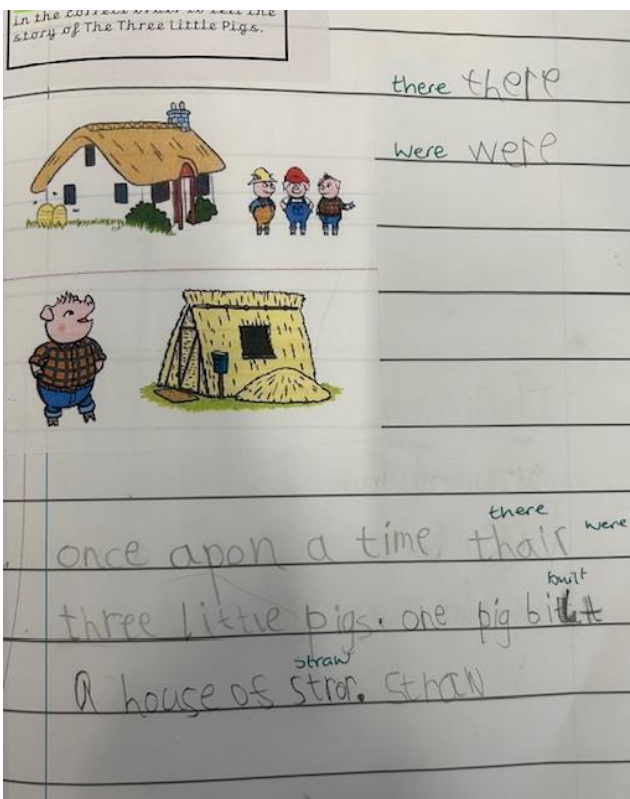 in the correct order to tell the
story of The Three Little Pigs.
there there
were were
there were
once apon a time thair
built
three little pigs. one pig bilt
straw
a house of stror. straw